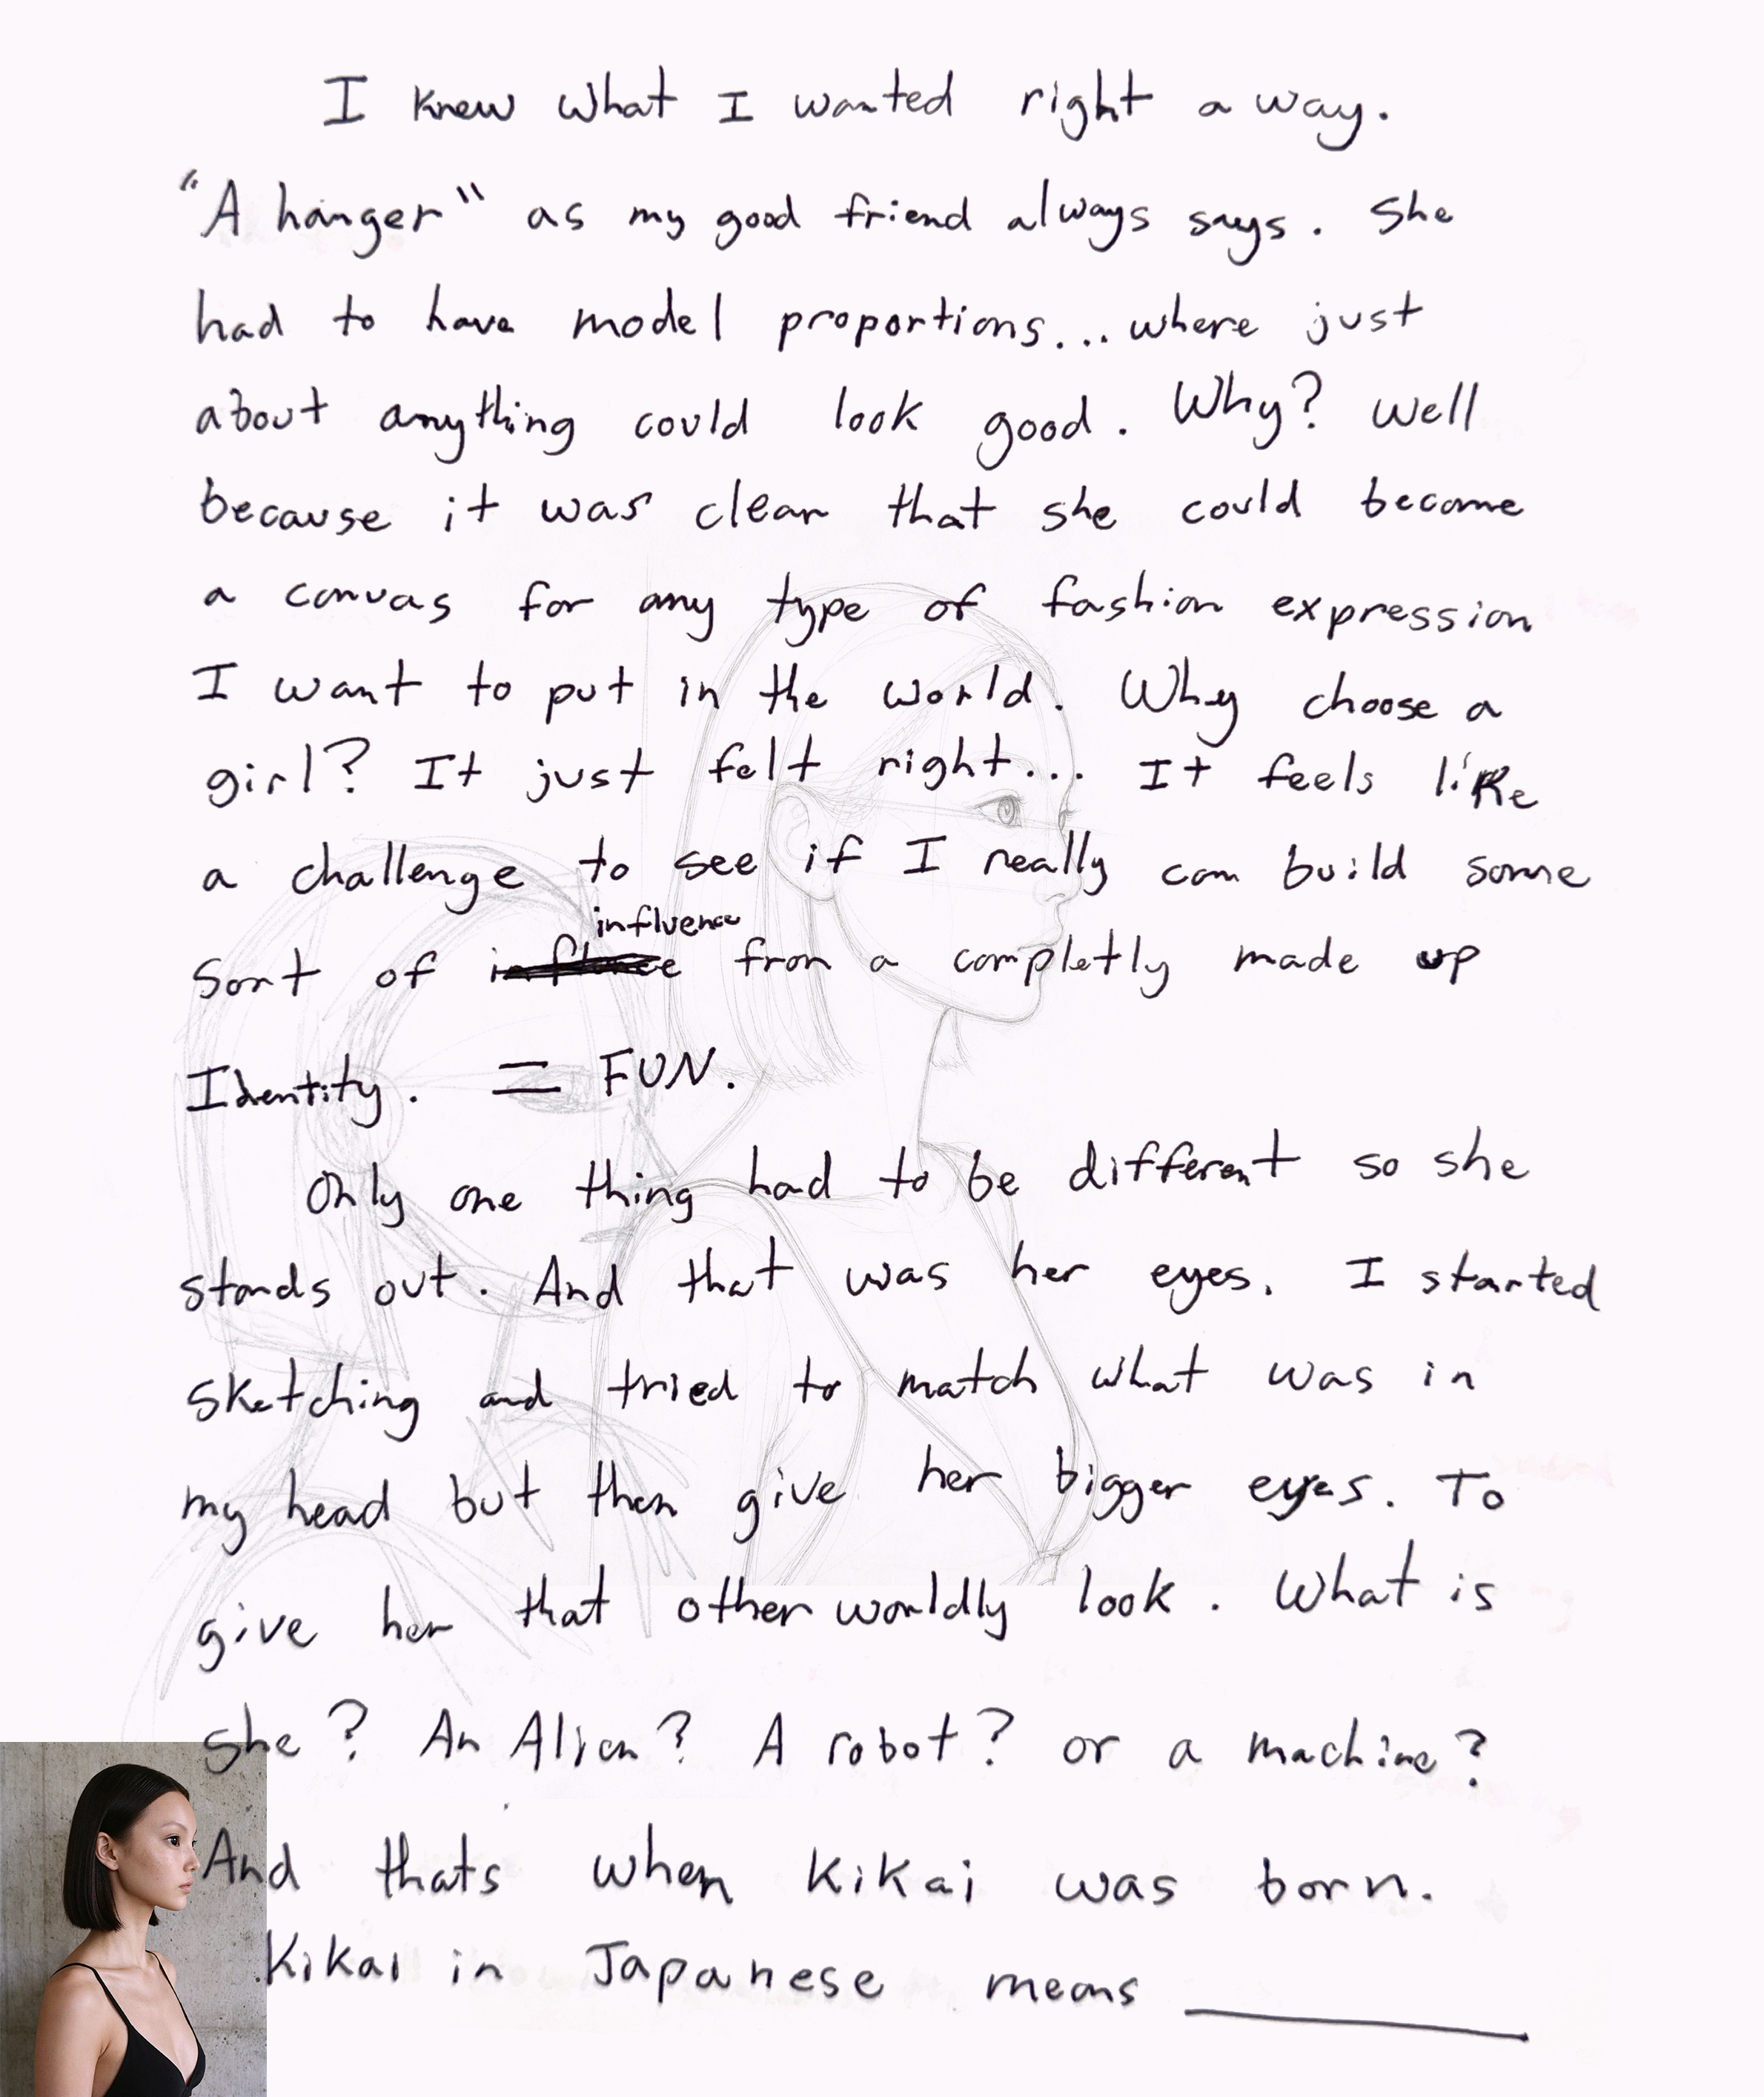 I knew what I wanted right away.
"A hanger" as my good friend always says. She
had to have model proportions... where just
about anything could look good. Why? Well
because it was clear that she could become
a canvas for any type of fashion expression
I want to put in the world. Why choose a
girl? It just felt right... It feels like
a challenge to see if I really can build some
influence
sort of from a completly made up
Identity. = FUN.
Only one thing had to be different so she
stands out. And that was her eyes. I started
sketching and tried to match what was in
my head but then give her bigger eyes. To
give her that other worldly look. What is
she? An Alien? A robot? or a machine?
And thats when Kikai was born.
Kikai in Japanese means